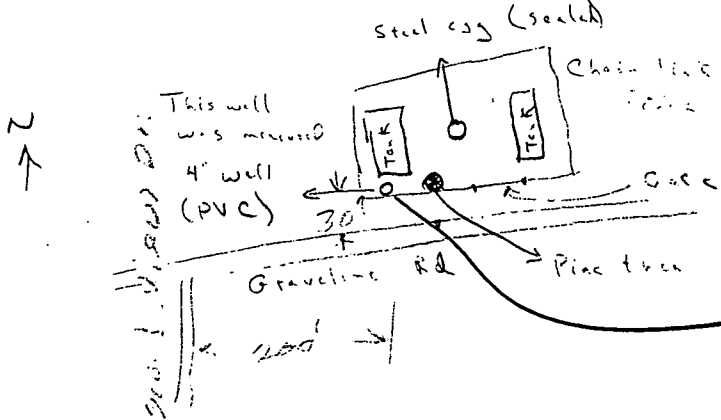 Steel csg (sealed)
Chain link
This well
was measured
4" well
(PVC)
Tank
Tank
N
30'
Gate
Graveline Rd
Pine tree
200'